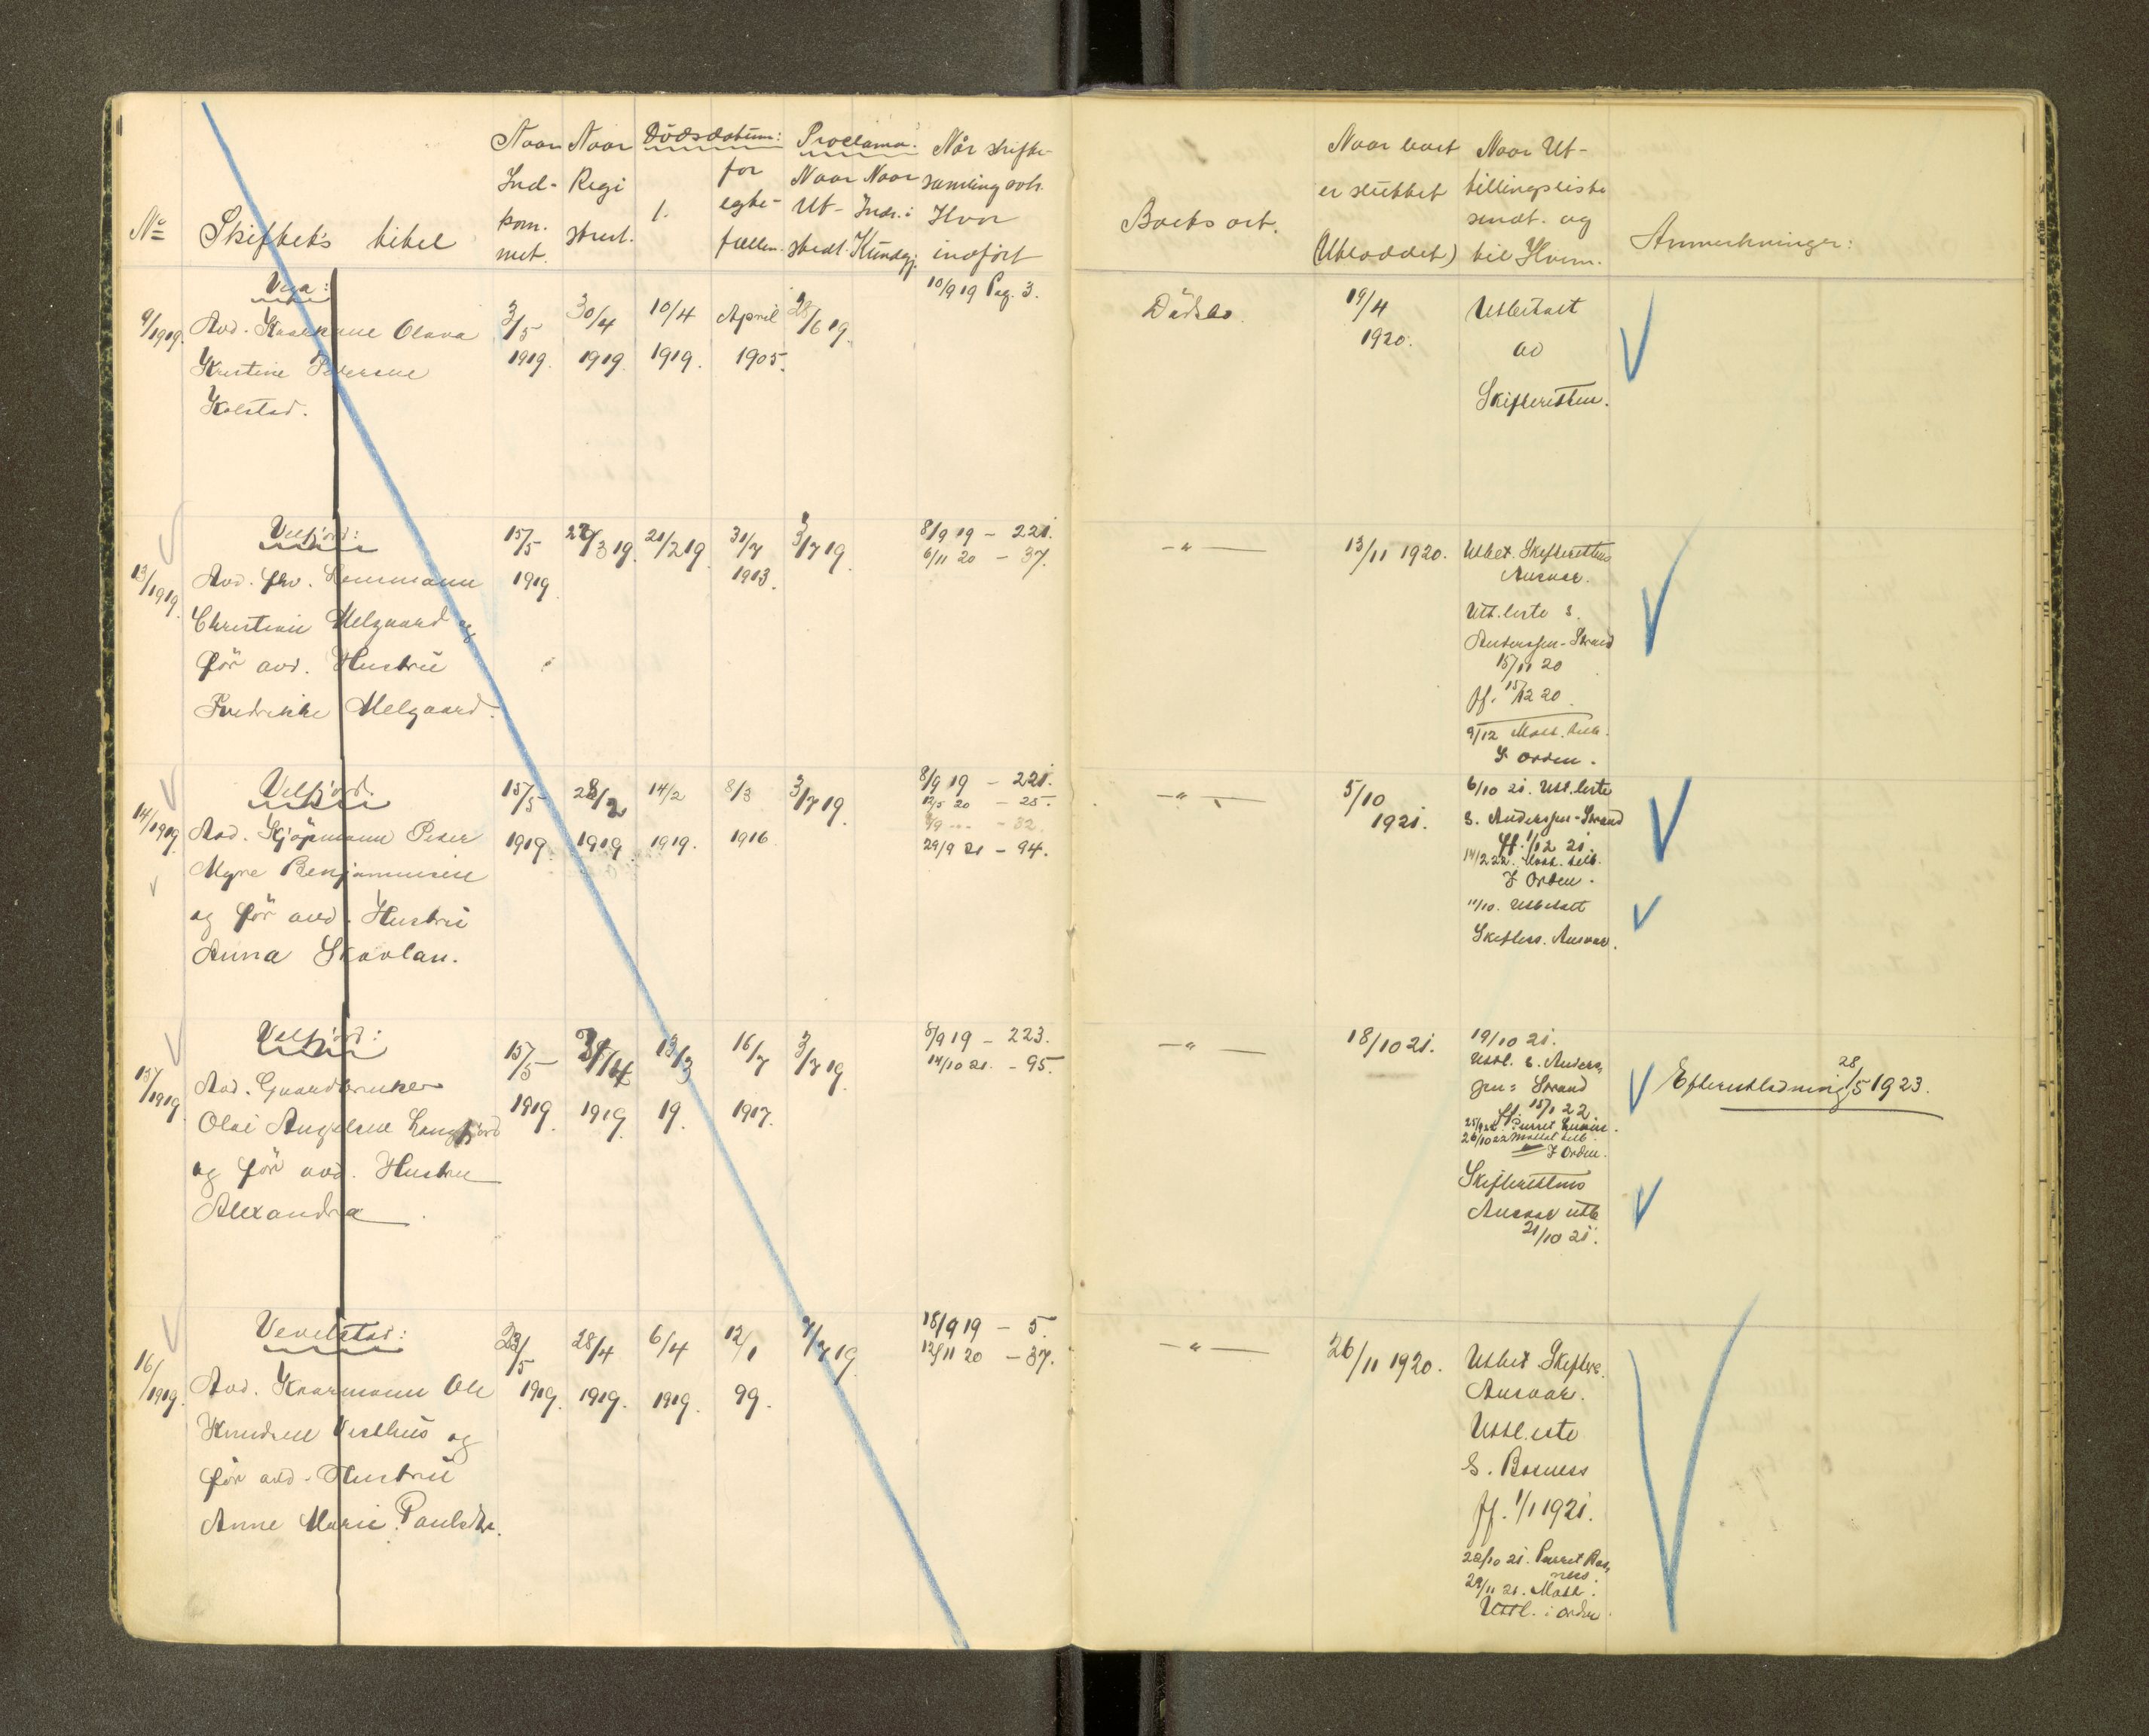 No Skiftets titel
Naar Ind- kom. met.
Naar Regi strert.
Dödsdatum:
1.
for egte- fællen.
Proclama:
Naar Ut- stedt.
Naar Indr. i Kundgj.
Når skifte- samling avh. Hvor indført
Boets art.
Naar boet er sluttet (Utloddet)
Naar Ut- tillingsliste sendt. og til Hvem.
Anmerkninger:
Vega:
9/1919. Avd. Olava
Kristine Pedersne
Kolstad.
3/5 1919. 30/4 1919. 10/4 1919. April 1905. 28/6 19. 10/9 19 Pag. 3.
Dödsbo. 19/4 1920. Utbetalt
av
Skifteretten.
Velfjord:
13/1919. Avd. fhv. Lensmann
Christian Melgaard og
før avd. Hustru
Fredrikke Melgaard.
15/5 1919 29/3 19. 21/2 19 31/7 1913. 3/7 19. 8/9 19 - 221.
6/11 20 - 37.
-"- 13/11 1920. Utbet. Skifterettens
Ansvar.
Utl. liste s.
Anderssen-Strand
15/11 20
ff. 15/12 20.
9/12 Mott. tilb.
I orden.
Velfjord.
14/1919. Avd. Kjøpmann Peder
Myre Benjaminsen
og før avd. Hustru
Anna Skavlan.
15/5 1919. 28/2 1919. 14/2 1919. 8/3 1916 3/7 19. 8/9 19 - 221.
12/5 20 - 25.
- 32.
29/9 21 - 94.
-"- 5/10 1921. 6/10 21. Utl. liste
s. Anderssen-Strand
ff. 1/12 21.
14/2 22. Mott. tilb.
I Orden.
11/10. Utbetalt
Skifters. Ansvar.
Velfjord:
15/1919. Avd. Gaardbruker
Olai Angelsen Langfjord
og før avd. Hustru
Alexandra
15/5 1919. 1919. 13/3 19. 16/7 1917. 3/7 19. 8/9 19 - 223.
14/10 21. - 95.
-"- 18/10 21. 19/10 21.
Utl. s. Anders,
sen: Strand
ff. 15/1 22.
Purret
26/10 22 Mottat tilb.
I Orden.
Skifterettens
Ansvar utb
21/10 21.
Efterutlodning 28/5 1923.
Vevelstad:
16/1919. Avd. Kaarmann Ole
Knudsen Vesthus og
før avd. Hustru
Anne Marie Paulsdtr.
23/5 1919. 28/4 1919. 6/4 1919. 12/1 99. 7/7 19. 18/9 19 - 5.
12/11 20 - 37.
-"- 26/11 1920. Utbet. Skiftere.
Ansvar.
Utl. liste
s. Bosness
ff. 1/1 1921.
28/10 21. Purret Bos,
ness.
29/11 21. Mott.
Utl. i orden.